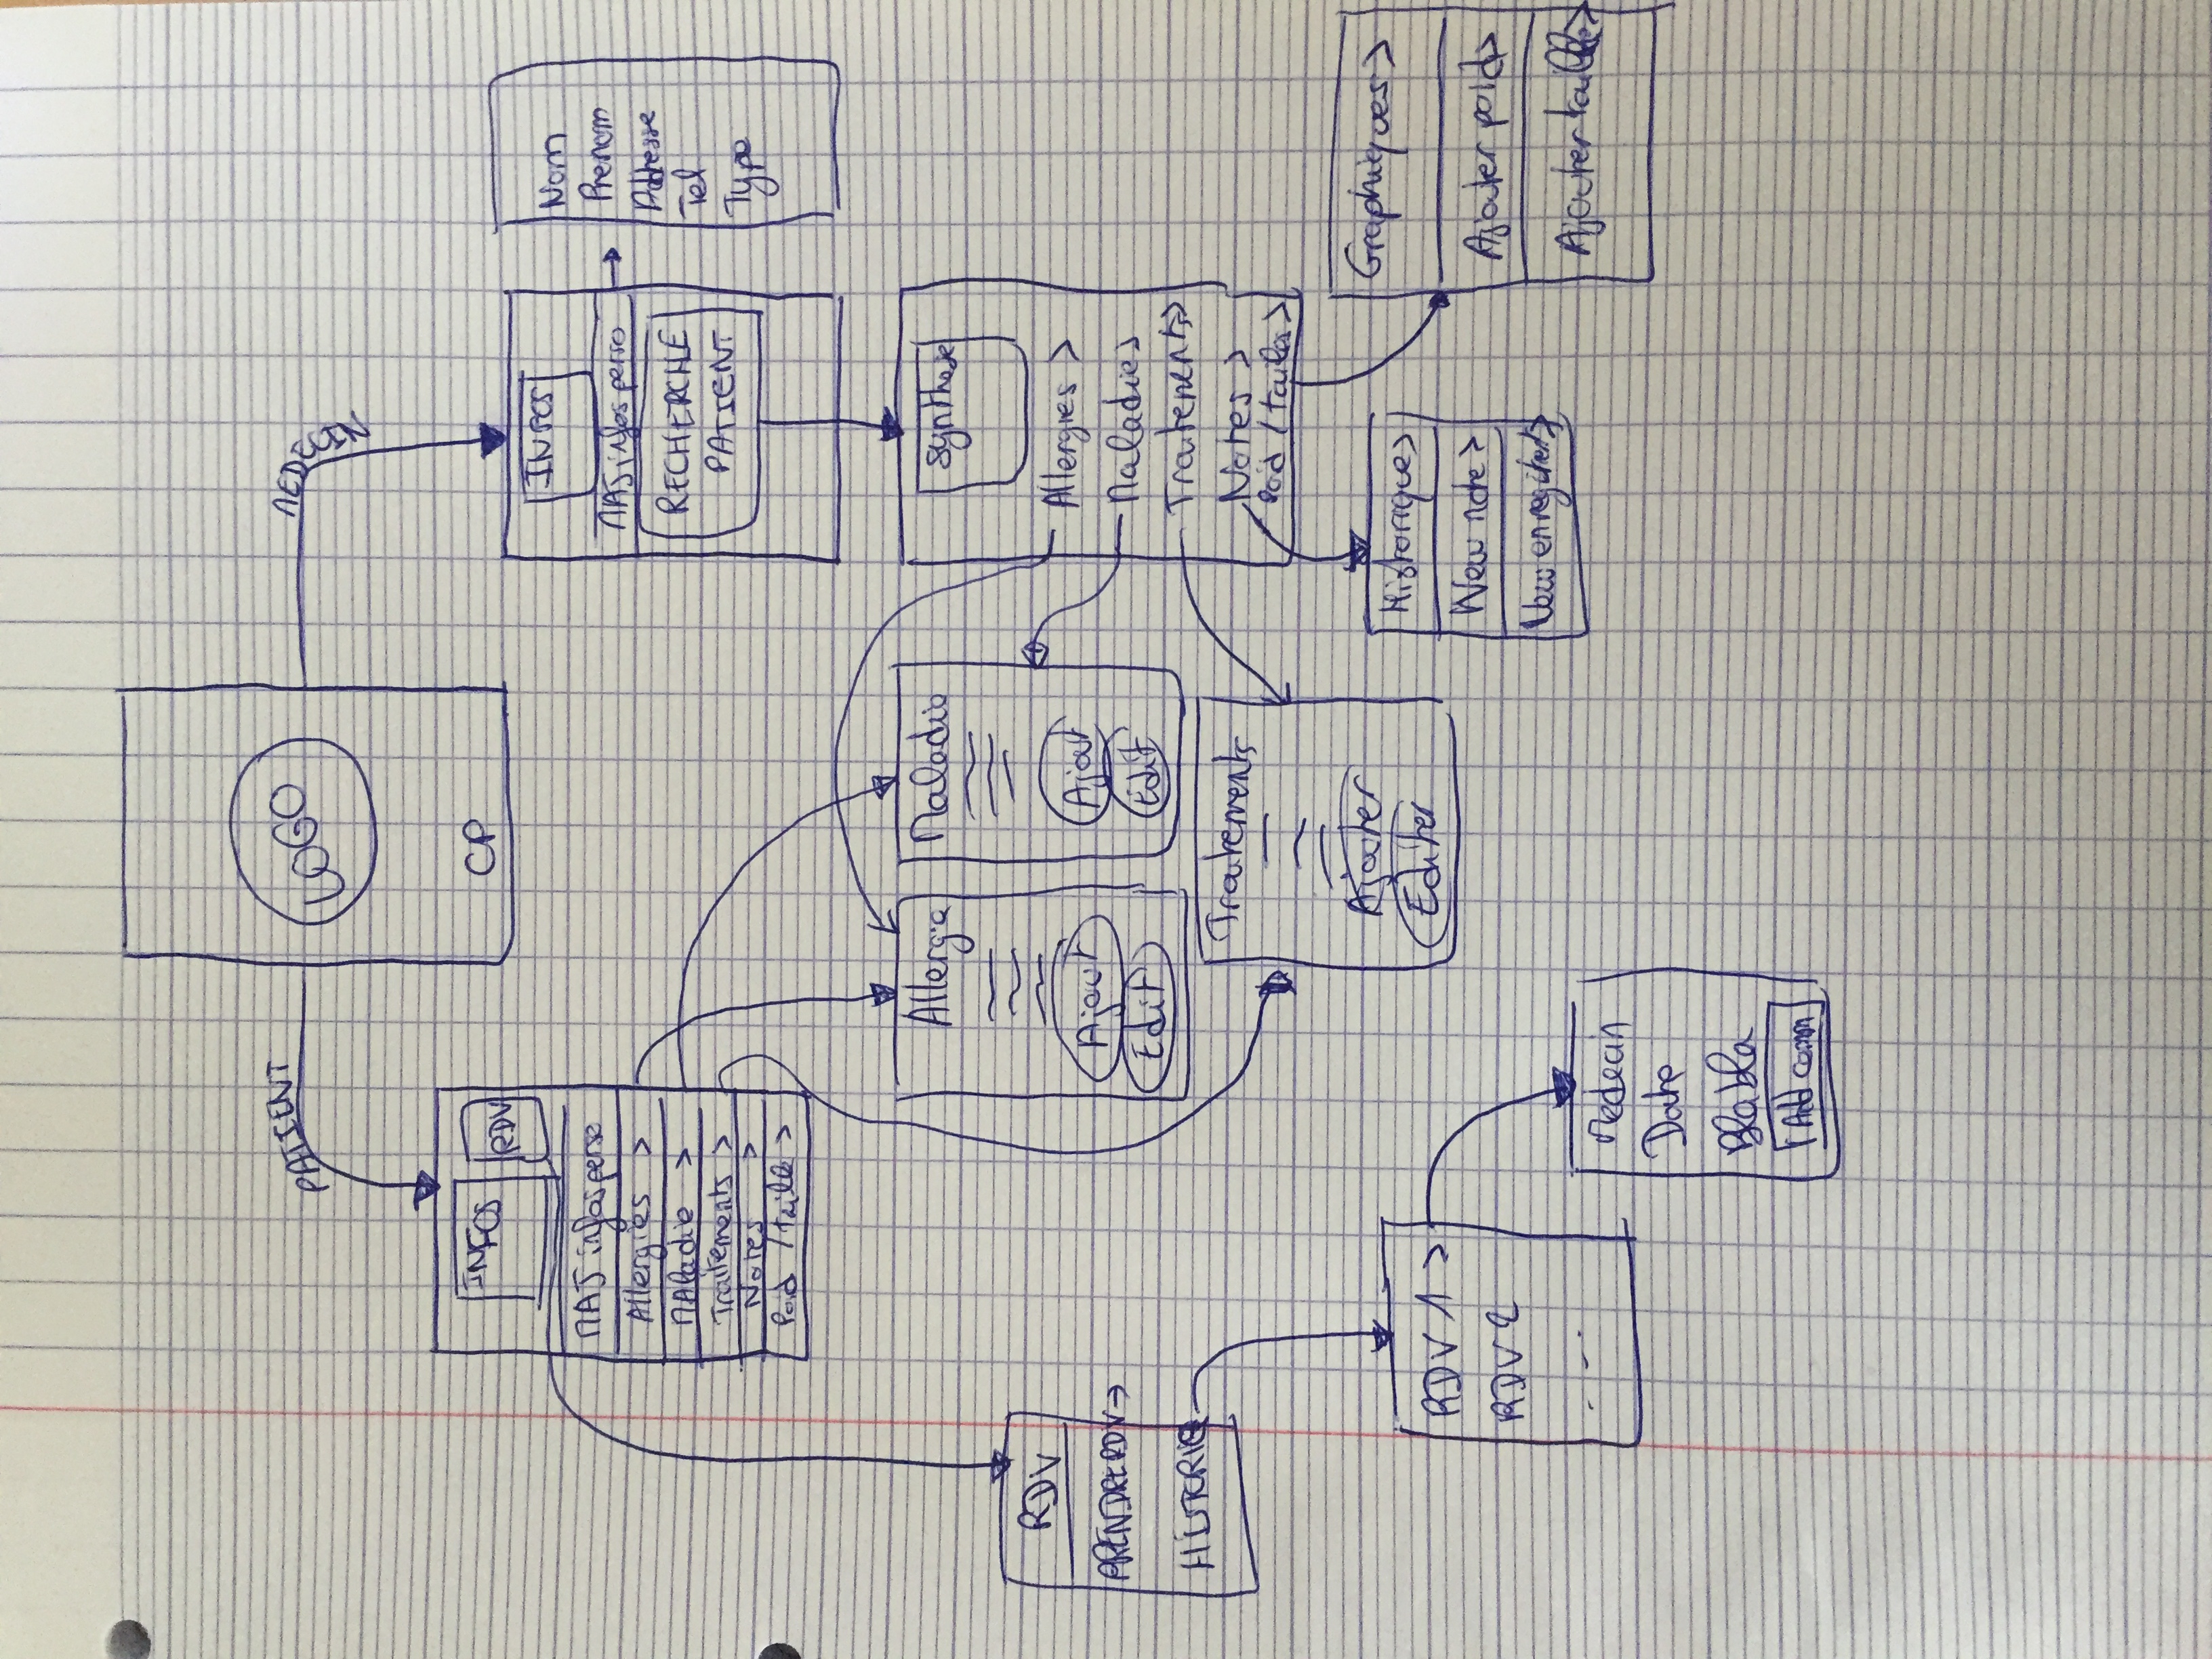 LOGO
CP
PATIENT
MEDECIN
INFOS
RDV
MAJ infos perso
Allergies >
Maladie >
Traitements >
Notes >
Poid / taille >
INFOS
MAJ infos perso
RECHERCHE
PATIENT
Nom
Prenom
Addresse
Tel
Type
Allergie
Ajout
Edit
Maladie
Ajout
Edit
Synthese
Allergies >
Maladies
Traitements >
Notes >
Poid / tailles >
RDV
PRENDRE RDV >
HISTORIQ
Traitements
Ajouter
Editer
RDV 1 >
RDV 2
...
Medecin
Date
Blabla
Add comm
Historique >
New note >
Graphiques >
Ajouter poid >
Ajouter taille >